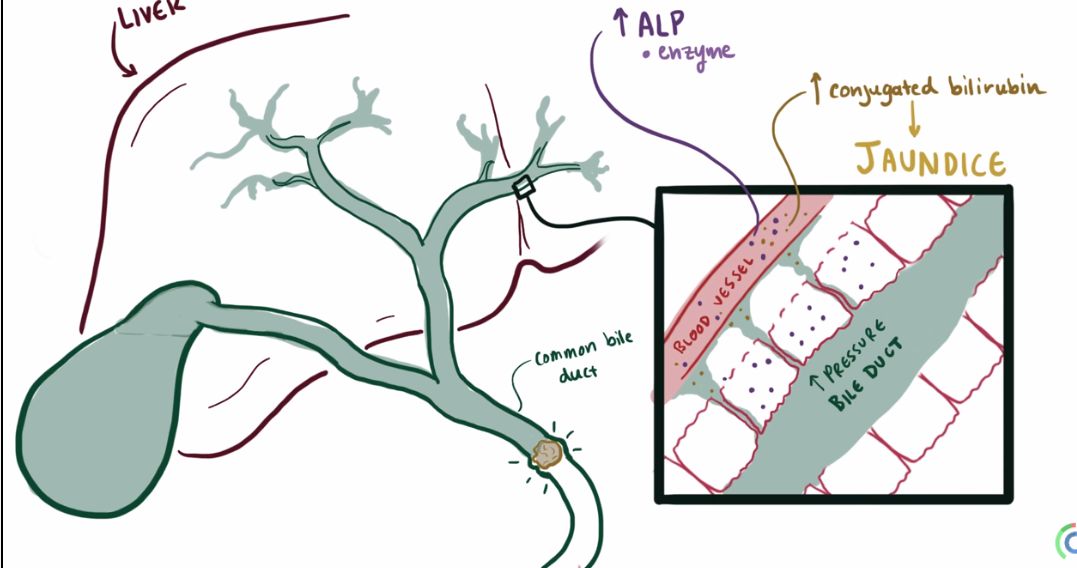 LIVER
↑ ALP
• enzyme
↑ conjugated bilirubin
↓
JAUNDICE
BLOOD VESSEL
↑ PRESSURE
BILE DUCT
common bile
duct